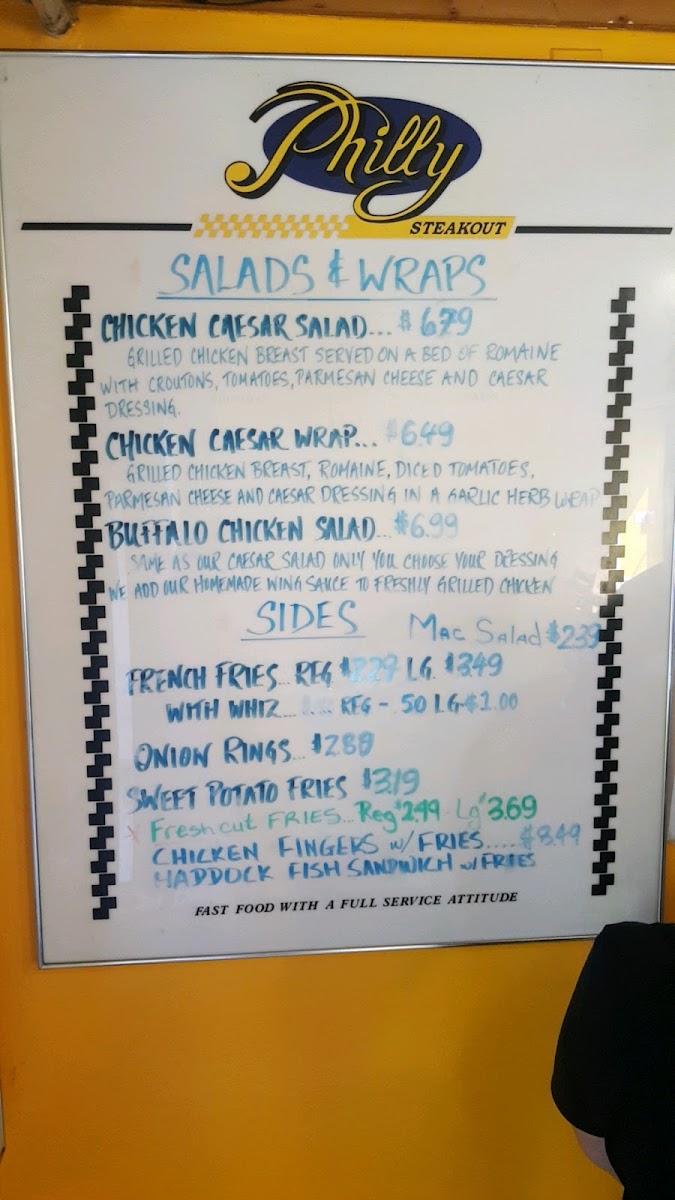 Philly
STEAKOUT
SALADS & WRAPS
CHICKEN CAESAR SALAD... $6.79
GRILLED CHICKEN BREAST SERVED ON A BED OF ROMAINE
WITH CROUTONS, TOMATOES, PARMESAN CHEESE AND CAESAR
DRESSING.
CHICKEN CAESAR WRAP... $6.49
GRILLED CHICKEN BREAST, ROMAINE, DICED TOMATOES,
PARMESAN CHEESE AND CAESAR DRESSING IN A GARLIC HERB WRAP
BUFFALO CHICKEN SALAD... $6.99
SAME AS OUR CAESAR SALAD ONLY YOU CHOOSE YOUR DRESSING
WE ADD OUR HOMEMADE WING SAUCE TO FRESHLY GRILLED CHICKEN
SIDES
Mac Salad $2.39
FRENCH FRIES... REG LG. $3.49
WITH WHIZ... REG - .50 LG-$1.00
ONION RINGS... $2.89
SWEET POTATO FRIES $3.19
x Fresh cut FRIES... Reg $2.49 - Lg $3.69
CHICKEN FINGERS w/ FRIES.... $8.49
HADDOCK FISH SANDWICH w/ FRIES
FAST FOOD WITH A FULL SERVICE ATTITUDE